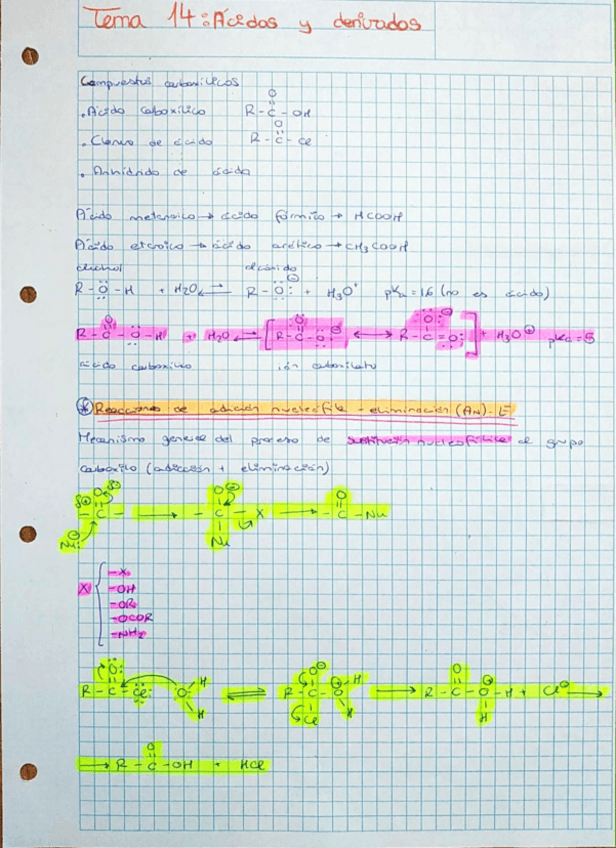 Tema 14: Ácidos y derivados
Compuestos carboxílicos
O
. Ácido carboxílico R - C - OH
O
. Cloruro de ácido R - C - Cl
. Anhídrido de ácido
Ácido metanoico → ácido fórmico → HCOOH
Ácido etanoico → ácido acético → CH3COOH
alcohol alcóxido
R - O - H + H2O ⇌ R - O:⊖ + H3O+ pKa = 16 (no es ácido)
R - C - O - H + H2O ⇌ [R - C - O:⊖ ⟷ R - C = O:] + H3O⊕ pKa = 5
ácido carboxílico ión carboxilato
* Reacciones de adición nucleófila - eliminación (AN) - E
Mecanismo general del proceso de sustitución nucleofílica al grupo
carboxilo (adición + eliminación)
δ⊕ O δ⊖ O⊖ O
- C - → - C - X → - C - Nu
Nu:⊖ Nu
- X
X - OH
- OR
- OCOR
- NH2
:O: O⊖ O
R - C - Cl: O - H ⇌ R - C - O⊕ - H → R - C - O⊕ - H + Cl⊖ →
H Cl H H
O
→ R - C - OH + HCl